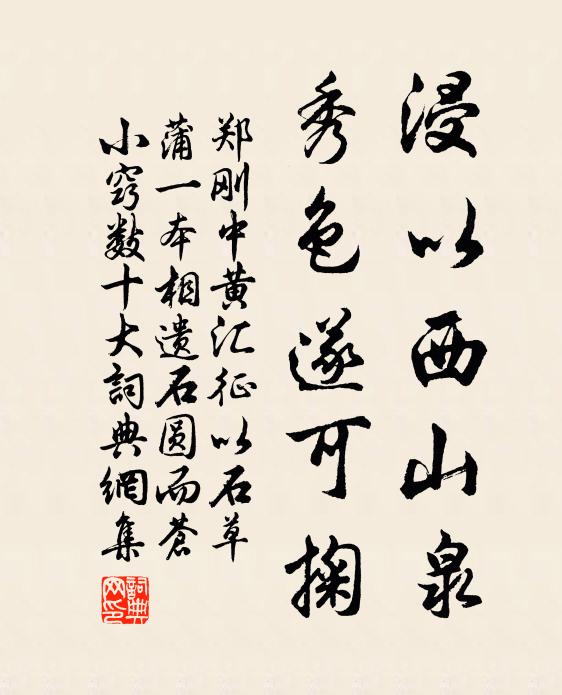 浸以西山泉
秀色遂可掬
郑刚中黄汇征以石草
蒲一本相遗石圆而苍
小窍数十大詞典網集
詞典
网印